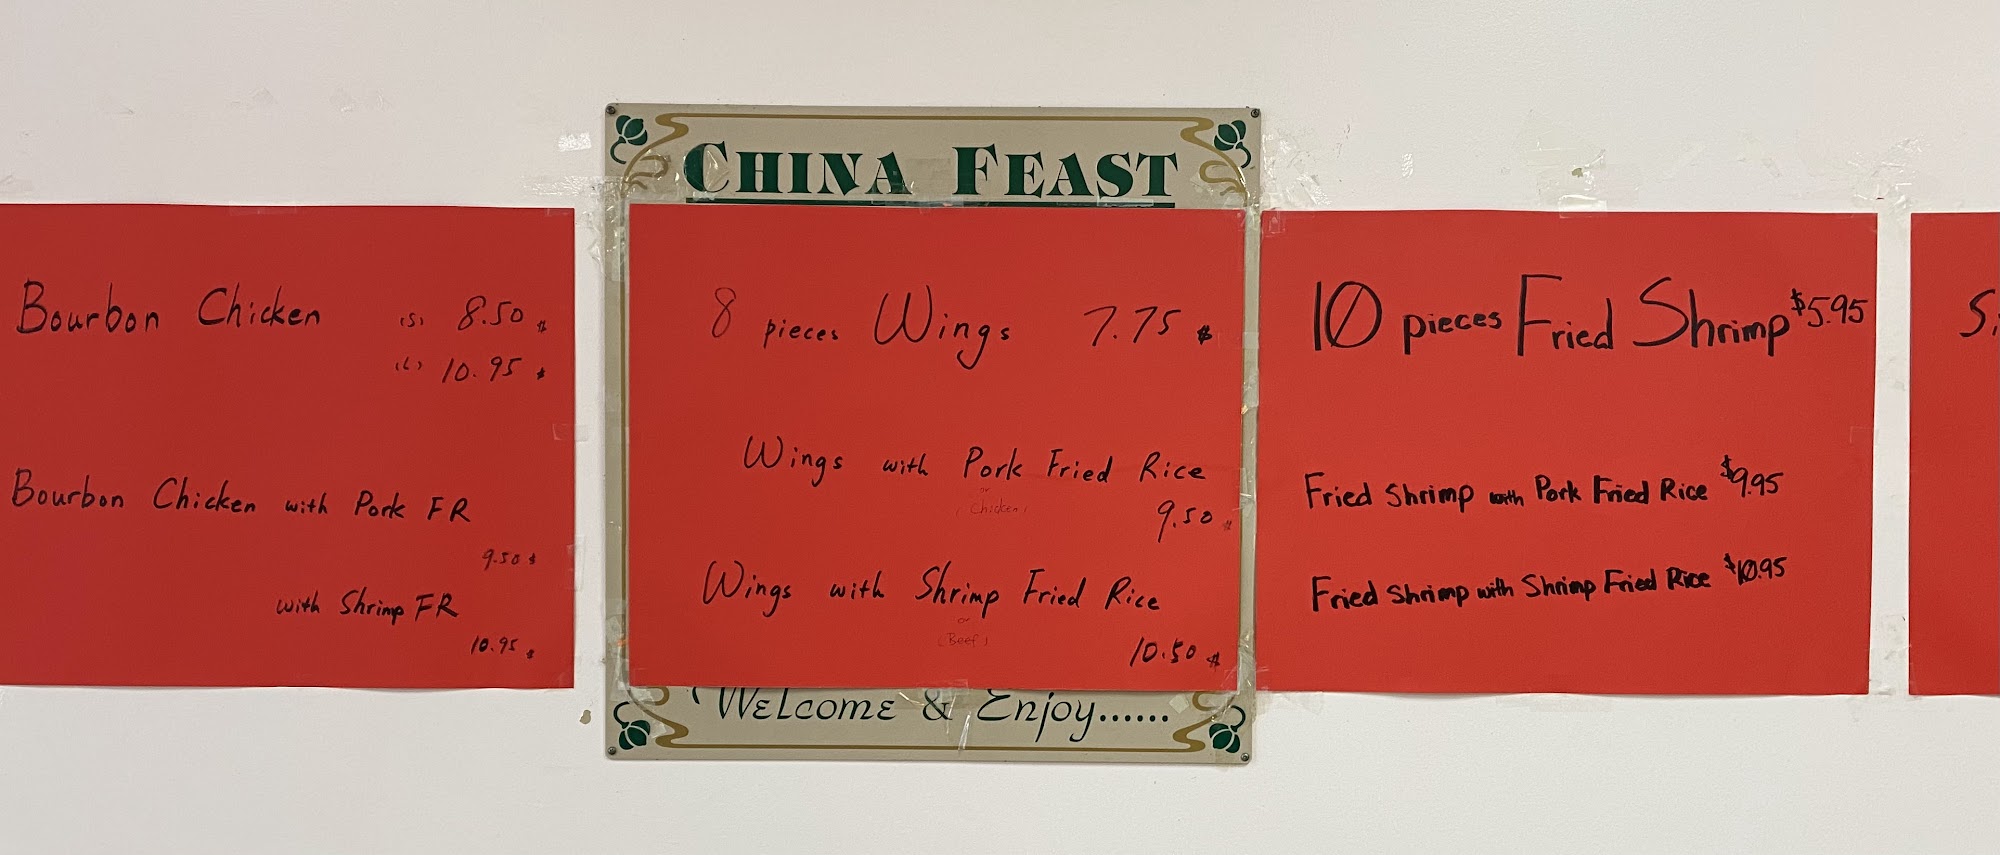 CHINA FEAST
Bourbon Chicken (S) 8.50 $
(L) 10.95 $
Bourbon Chicken with Pork FR
9.50 $
with Shrimp FR
10.95 $
8 pieces Wings 7.75 $
Wings with Pork Fried Rice
or
(Chicken)
9.50 $
Wings with Shrimp Fried Rice
or
(Beef)
10.50 $
10 pieces Fried Shrimp $5.95
Fried Shrimp with Pork Fried Rice $9.95
Fried Shrimp with Shrimp Fried Rice $10.95
Welcome & Enjoy......